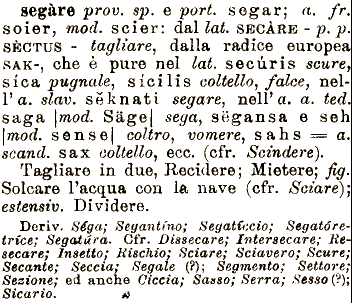 segàre prov. sp. e port. segar; a. fr.
soier, mod. scier: dal lat. SECÀRE - p. p.
SÈCTUS - tagliare, dalla radice europea
SAK-, che è pure nel lat. secúris scure,
síca pugnale, sícilis coltello, falce, nel-
l'a. slav. sèknati segare, nell'a. a. ted.
saga |mod. Säge| sega, sëgansa e seh
|mod. sense| coltro, vomere, sahs = a.
scand. sax coltello, ecc. (cfr. Scindere).
Tagliare in due, Recidere; Mietere; fig.
Solcare l'acqua con la nave (cfr. Sciare);
estensiv. Dividere.
Deriv. Séga; Segantíno; Segatíccio; Segatóre-
tríce; Segatúra. Cfr. Dissecare; Intersecare; Re-
secare; Insetto; Rischio; Sciare; Sciavero; Scure;
Secante; Seccia; Segale (?); Segmento; Settore;
Sezione; ed anche Ciccia; Sasso; Serra; Sesso (?);
Sicario.